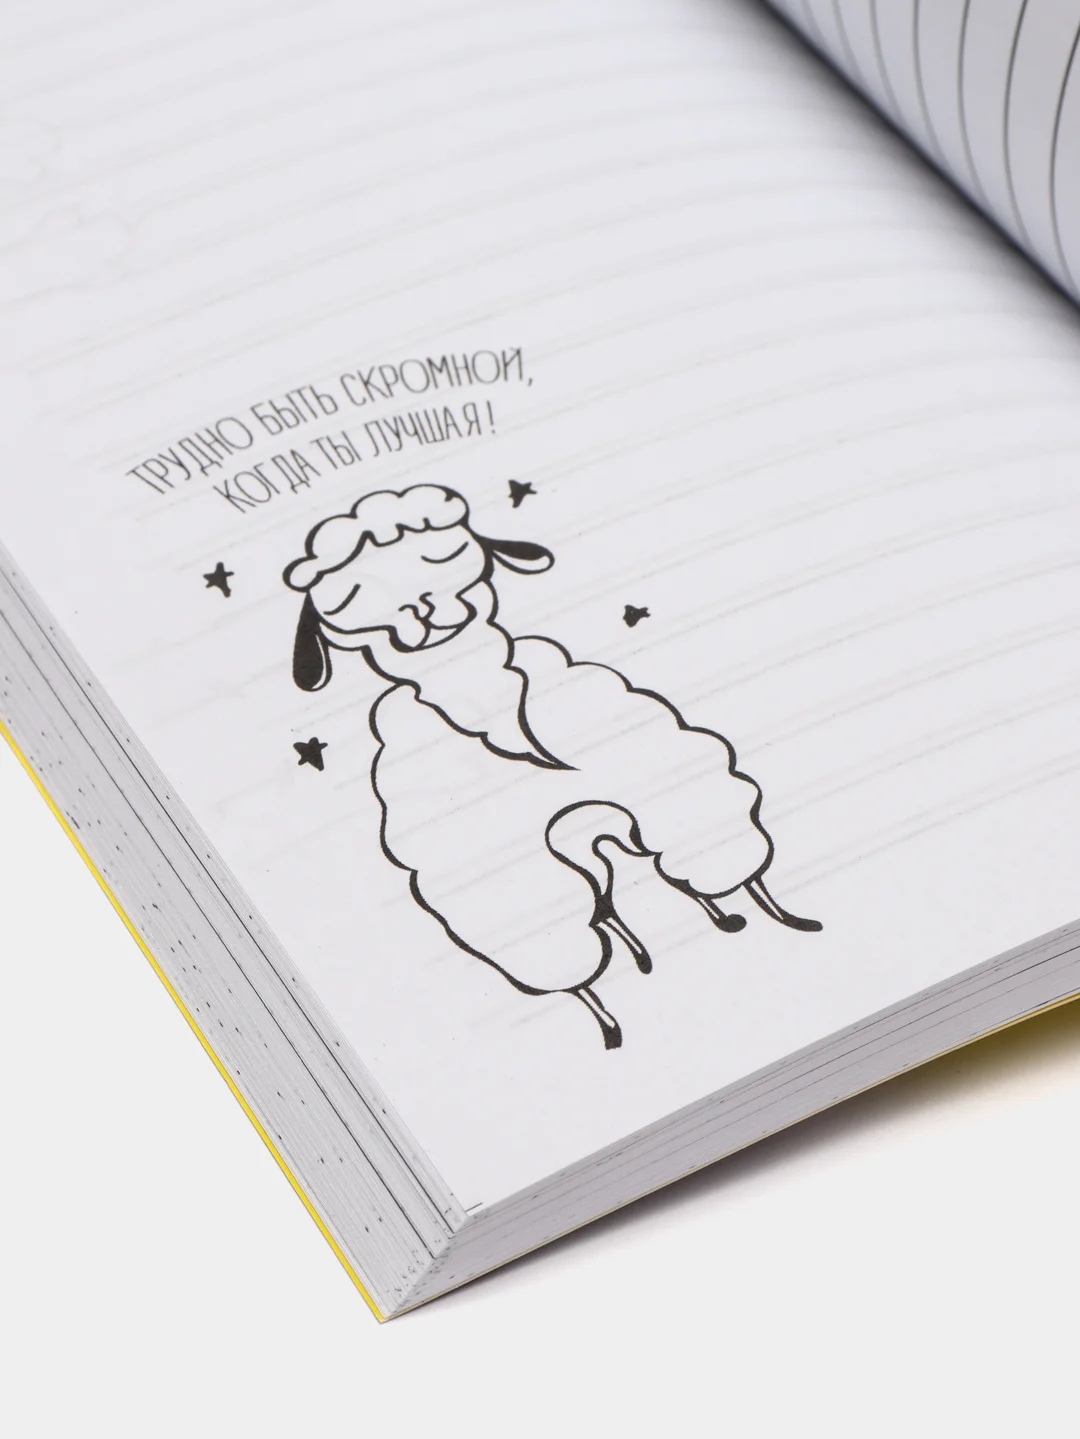 ТРУДНО БЫТЬ СКРОМНОЙ,
КОГДА ТЫ ЛУЧШАЯ!